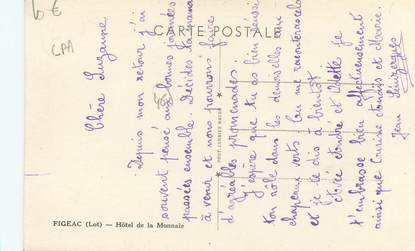 6 €
CPA
CARTE POSTALE
Chère Suzanne
Depuis mon retour j'ai
souvent pensé aux bonnes journées
passées ensemble. Décidez ta maman
à venir et nous pourrons faire
d'agréables promenades.
J'espère que tu as bien réussi
ton rôle dans les demoiselles aux
chapeaux verts! Tu me raconteras cela
et je te dis à bientôt.
André et Odette je
t'embrasse bien affectueusement
ainsi que
et Marie.
Jean
FIGEAC (Lot) — Hôtel de la Monnaie